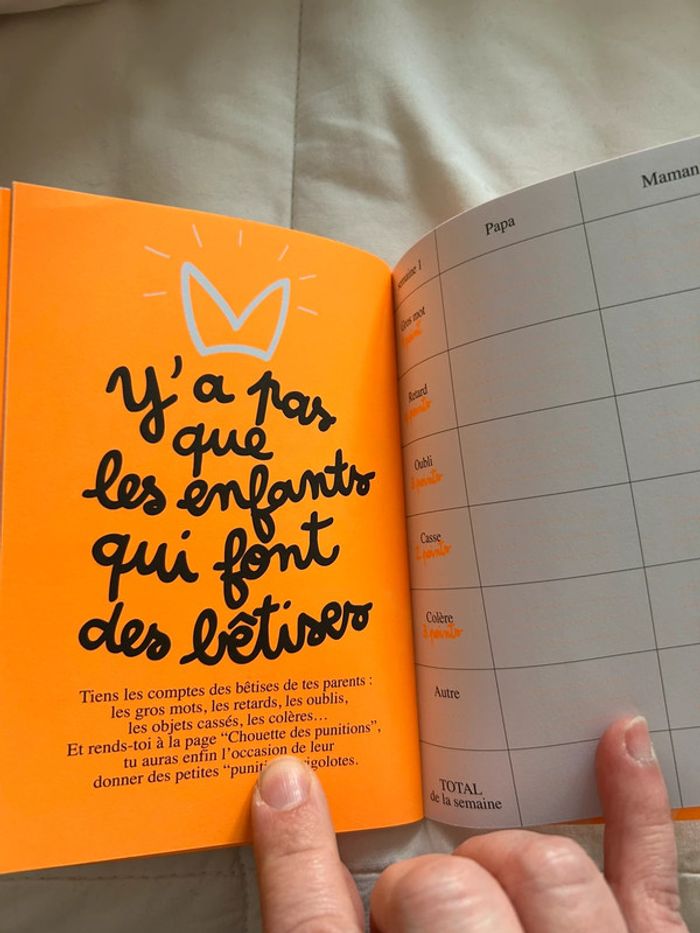 Y'a pas
que
les enfants
qui font
des bêtises
Tiens les comptes des bêtises de tes parents :
les gros mots, les retards, les oublis,
les objets cassés, les colères...
Et rends-toi à la page “Chouette des punitions”,
tu auras enfin l'occasion de leur
donner des petites
Papa
Maman
semaine 1
Gros mot
Retard
points
Oubli
3 points
Casse
2 points
Colère
3 points
Autre
TOTAL
de la semaine